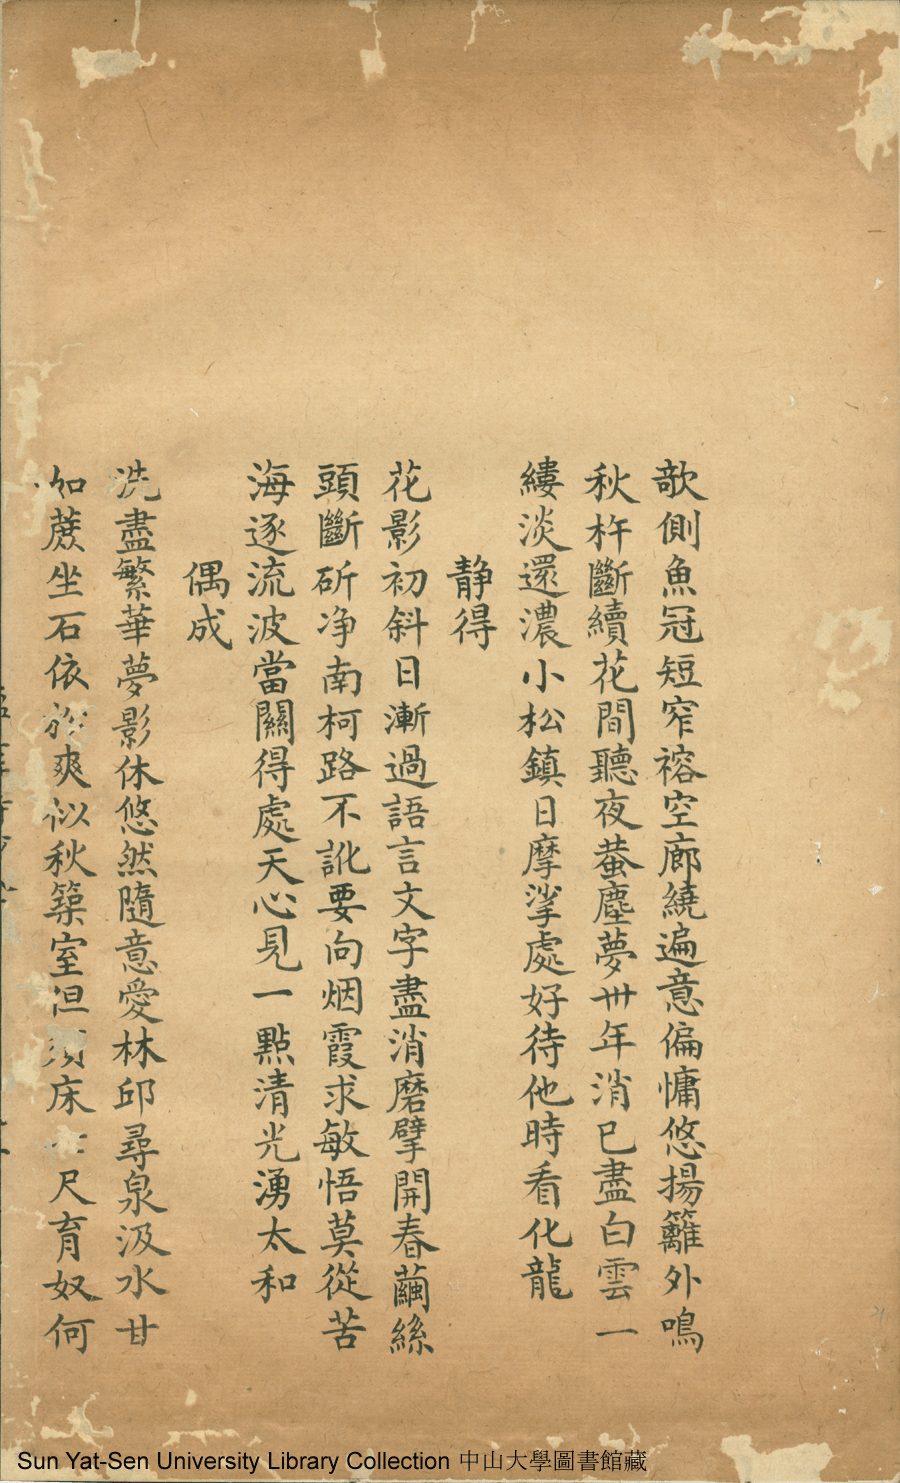 欹側魚冠短窄褣空廊繞遍意偏慵悠揚籬外鳴
秋杵斷續花間聽夜蛬塵夢卅年消已盡白雲一
縷淡還濃小松鎮日摩挲處好待他時看化龍
静得
花影初斜日漸過語言文字盡消磨擘開春繭絲
頭斷斫净南柯路不訛要向烟霞求敏悟莫從苦
海逐流波當關得處天心見一點清光湧太和
偶成
洗盡繁華夢影休悠然隨意愛林邱尋泉汲水甘
如蔗坐石依松爽似秋築室但須床七尺育奴何
Sun Yat-Sen University Library Collection 中山大學圖書館藏